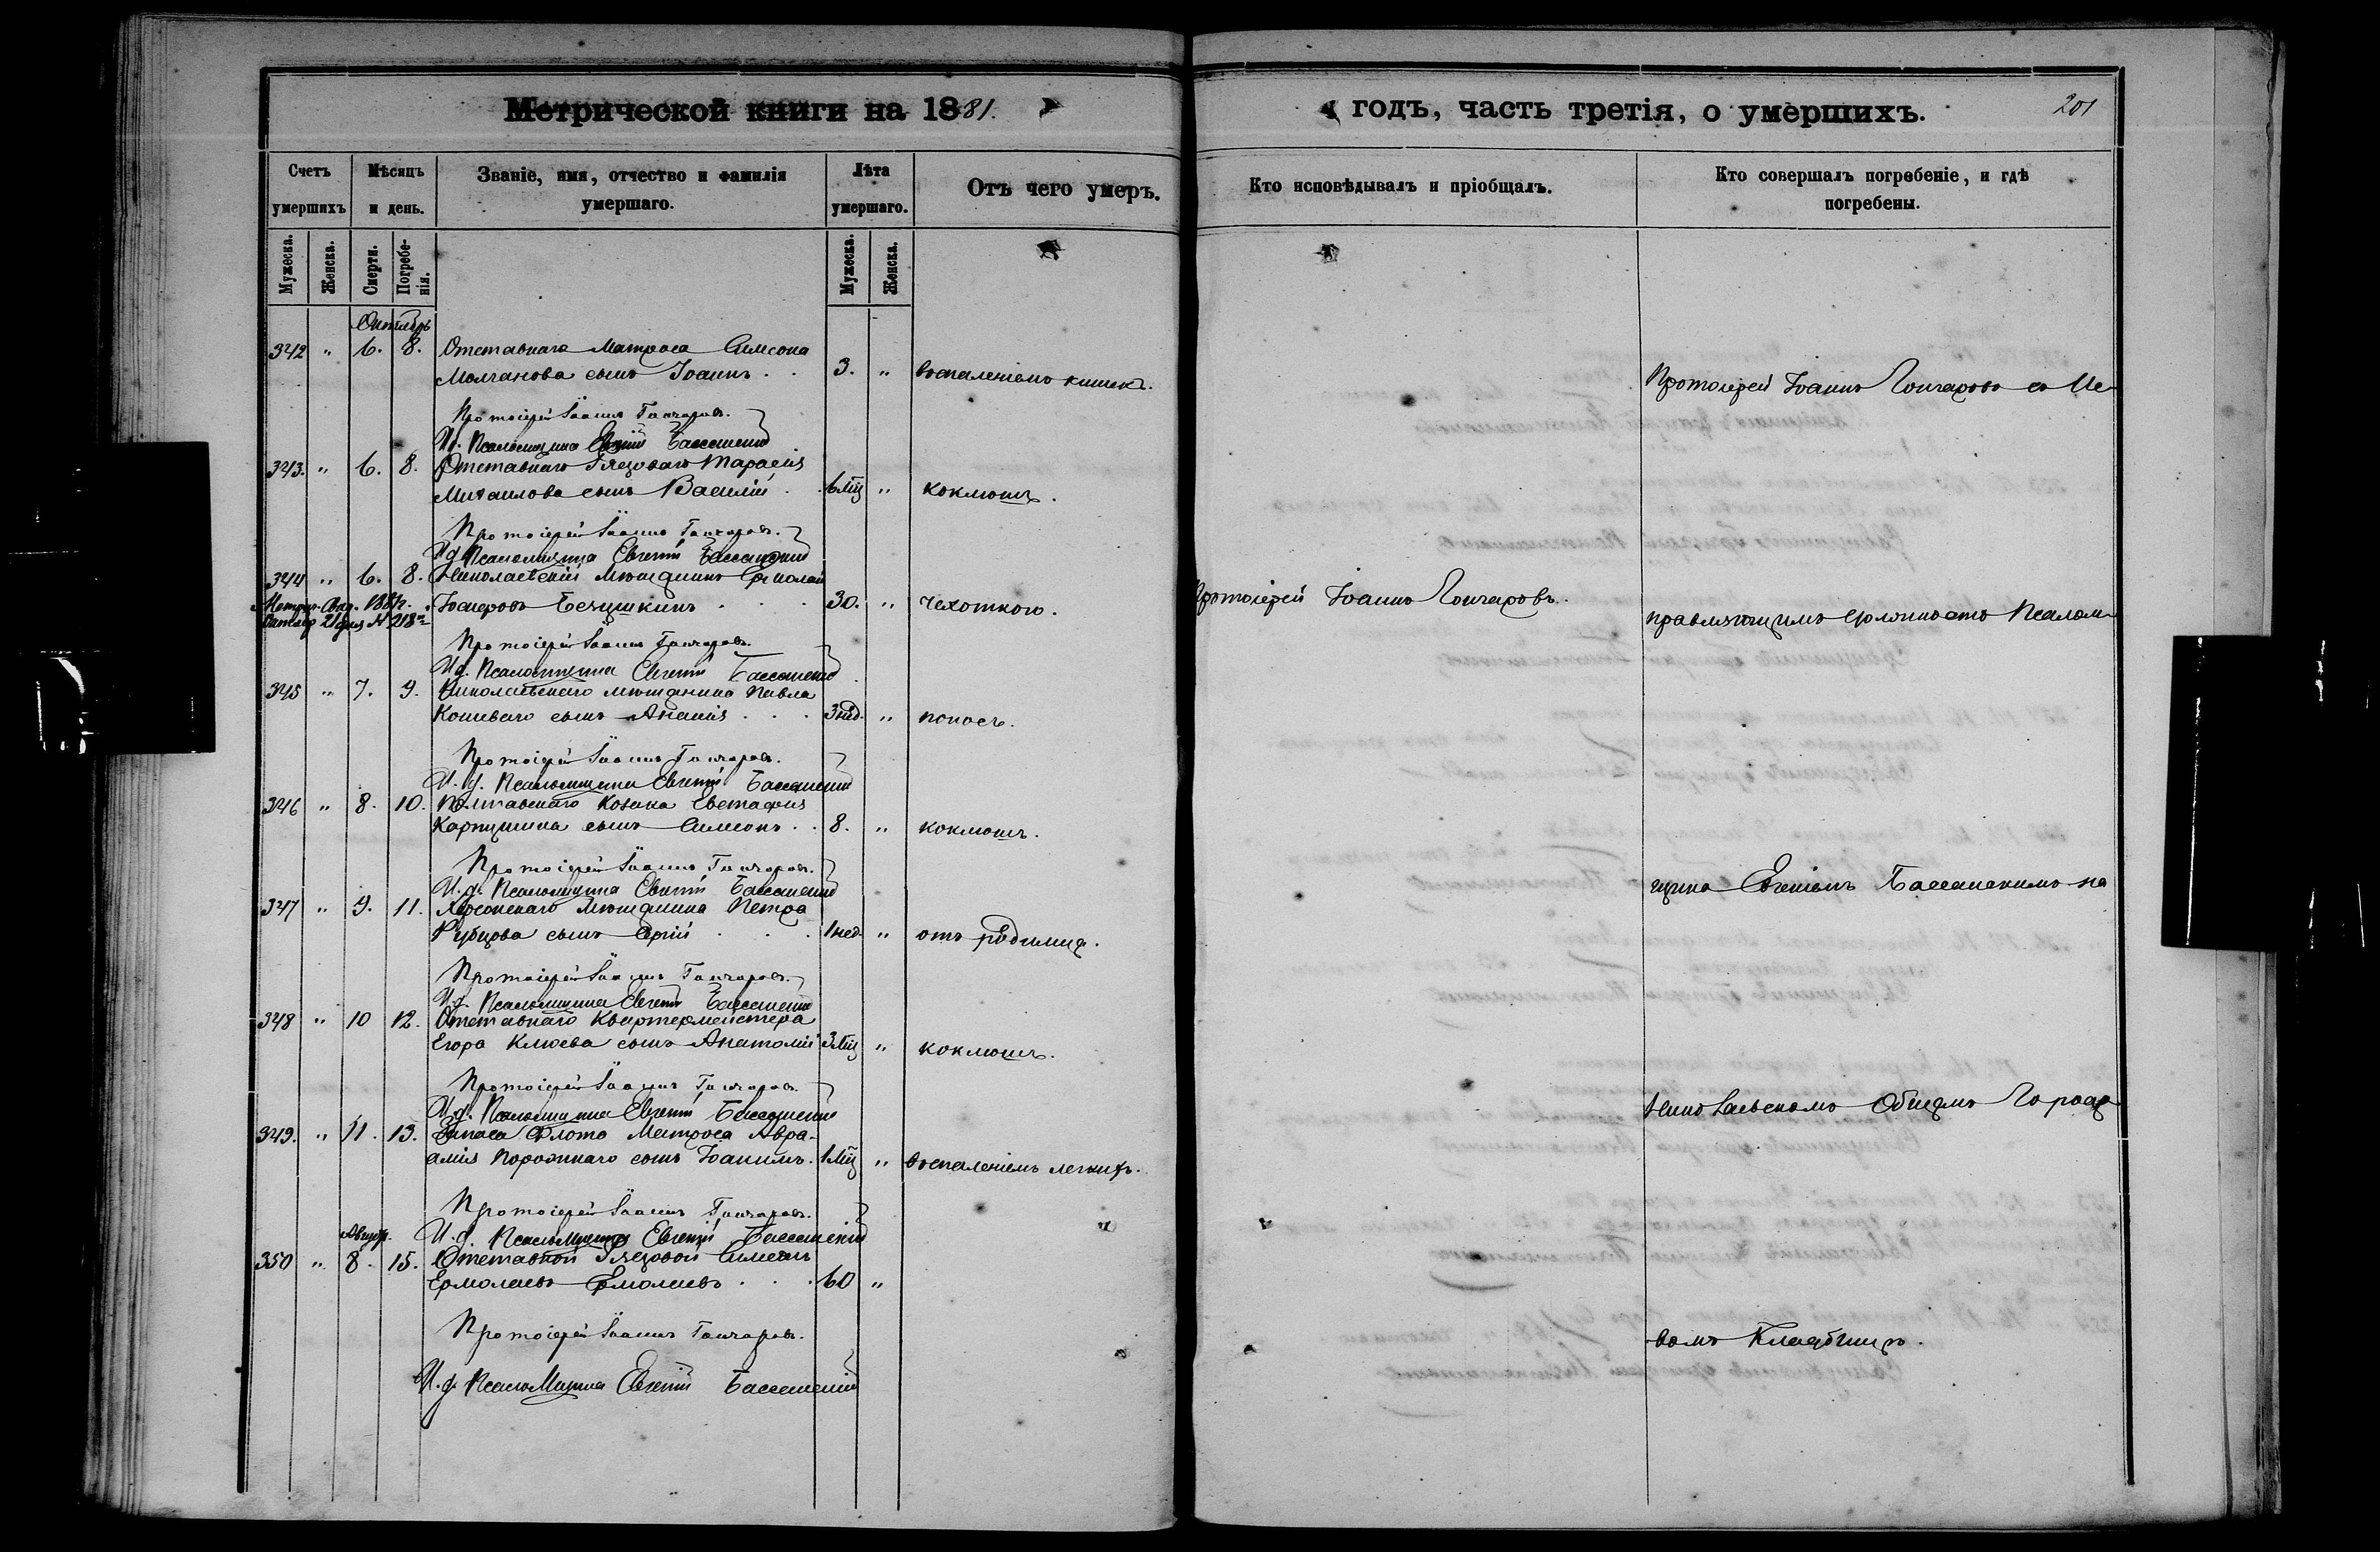 Метрической книги на 1881.
годъ, часть третія, о умершихъ.
201
Счетъ умершихъ
Мѣсяцъ и день.
Званіе, имя, отчество и фамилія умершаго.
Лѣта умершаго.
Отъ чего умеръ.
Кто исповѣдывалъ и пріобщалъ.
Кто совершалъ погребеніе, и гдѣ погребены.
Мужеска.
Женска.
Смерти.
Погребенія.
Мужеска.
Женска.
Октябрь
342 " 6. 8. Отставнаго Матроса Симеона
Молчанова сынъ Іоаннъ . . 3. " воспаленіемъ кишекъ.
Протоіерей Іоаннъ Гончаровъ со Ис-
Протоіерей Іоаннъ Гончаровъ.
И. д. Псаломщика Евгеній Бассанскій
343. " 6. 8. Отставнаго Рядоваго Тарасія
Михаилова сынъ Василій . 6 Мц " коклюшъ.
Протоіерей Іоаннъ Гончаровъ.
И д Псаломщика Евгеній Бассанскій
344 " 6. 8. Николаевскій Мѣщанинъ Николай
30. " Чахоткою. Протоіерей Іоаннъ Гончаровъ.
правляющимъ должность Псалом-
Протоіерей Іоаннъ Гончаровъ.
И д. Псаломщика Евгеній Бассанскій
345 " 7. 9. Николаевскаго мѣщанина Павла
Кошеваго сынъ Ананія . . . 3 нед. " поносъ.
Протоіерей Іоаннъ Гончаровъ.
И. д. Псаломщика Евгеній Бассанскій
346 " 8. 10. Полтавскаго Козака Евстафія
Карпушина сынъ Симеонъ . . 8. " коклюшъ.
Протоіерей Іоаннъ Гончаровъ.
И. д. Псаломщика Евгеній Бассанскій
щика Евгеніемъ Бассанскимъ на
347 " 9. 11. Херсонскаго Мѣщанина Петра
Рубцова сынъ Сергій . . . 1 нед. " отъ родимца.
Протоіерей Іоаннъ Гончаровъ.
И д. Псаломщика Евгеній Бассанскій
348 " 10 12. Отставнаго Квартермейстера
Егора Клюева сынъ Анатолій 3 Мц " коклюшъ.
Протоіерей Іоаннъ Гончаровъ.
И. д. Псаломщика Евгеній Бассанскій
Николаевскомъ Общемъ Городс-
349. " 11. 13. Запаса Флота Матроса Авра-
амія Порожнаго сынъ Іоакимъ. 1 Мц " воспаленіемъ легкихъ.
Протоіерей Іоаннъ Гончаровъ.
И. д. Псаломщика Евгеній Бассанскій
350 " 8. 15. Отставной Рядовой Симеонъ
Ермолаевъ Ермолаевъ . . . 60 "
Протоіерей Іоаннъ Гончаровъ.
комъ Кладбищѣ.
И. д. Псаломщика Евгеній Бассанскій